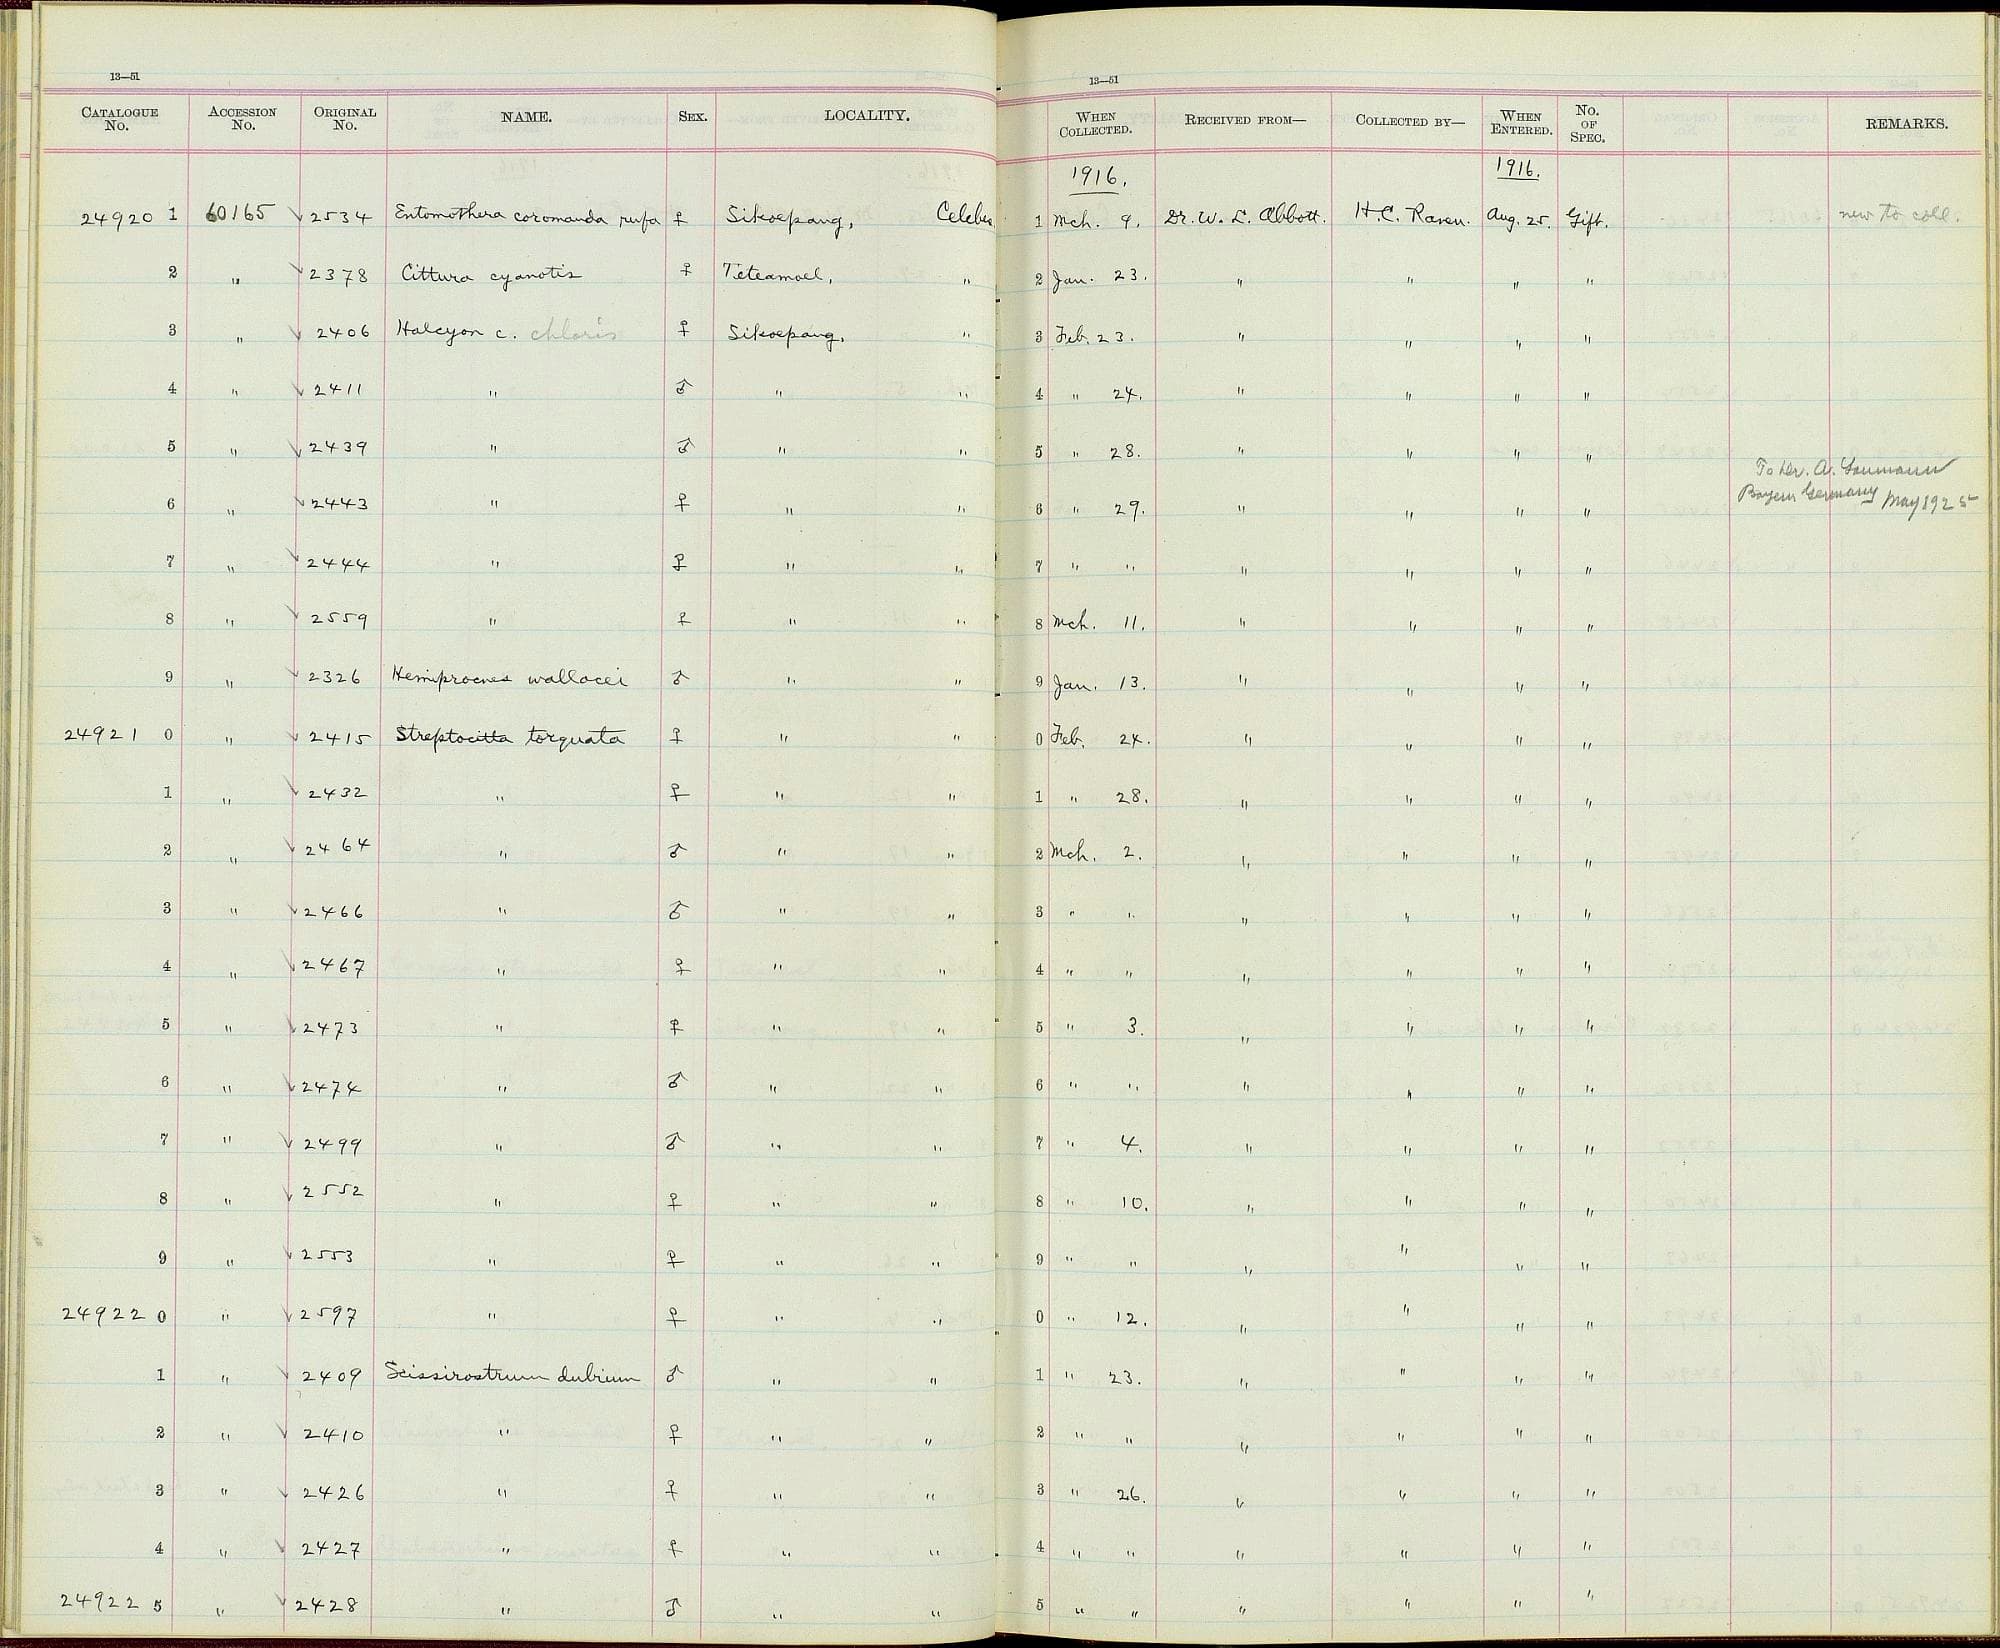 13—51
CATALOGUE No. ACCESSION No. ORIGINAL No. NAME. SEX. LOCALITY.
24920 1 60165 √ 2534 Entomothera coromanda rufa ♀ Sikoepang, Celebes
2 " √ 2378 Cittura cyanotis ♀ Teteamoel, "
3 " √ 2406 Halcyon c. chloris ♀ Sikoepang, "
4 " √ 2411 " ♂ " "
5 " √ 2439 " ♂ " "
6 " √ 2443 " ♀ " "
7 " √ 2444 " ♀ " "
8 " √ 2559 " ♀ " "
9 " √ 2326 Hemiprocnes wallacei ♂ " "
24921 0 " √ 2415 Streptocitta torquata ♀ " "
1 " √ 2432 " ♀ " "
2 " √ 2464 " ♂ " "
3 " √ 2466 " ♂ " "
4 " √ 2467 " ♀ " "
5 " √ 2473 " ♀ " "
6 " √ 2474 " ♂ " "
7 " √ 2499 " ♂ " "
8 " √ 2552 " ♀ " "
9 " √ 2553 " ♀ " "
24922 0 " √ 2597 " ♀ " "
1 " √ 2409 Scissirostrum dubium ♂ " "
2 " √ 2410 " ♀ " "
3 " √ 2426 " ♀ " "
4 " √ 2427 " ♀ " "
24922 5 " √ 2428 " ♂ " "
13—51
WHEN COLLECTED. RECEIVED FROM— COLLECTED BY— WHEN ENTERED. No. OF SPEC. REMARKS.
1916. 1916.
1 Mch. 9. Dr. W. L. Abbott. H. C. Raven. Aug. 25. Gift. new to coll.
2 Jan. 23. " " " "
3 Feb. 23. " " " "
4 " 24. " " " "
5 " 28. " " " "
To Dr. A.
Bayern Germany May 1925
6 " 29. " " " "
7 " " " " " "
8 Mch. 11. " " " "
9 Jan. 13. " " " "
0 Feb. 24. " " " "
1 " 28. " " " "
2 Mch. 2. " " " "
3 " " " " " "
4 " " " " " "
5 " 3. " " " "
6 " " " " " "
7 " 4. " " " "
8 " 10. " " " "
9 " " " " " "
0 " 12. " " " "
1 " 23. " " " "
2 " " " " " "
3 " 26. " " " "
4 " " " " " "
5 " " " " " "